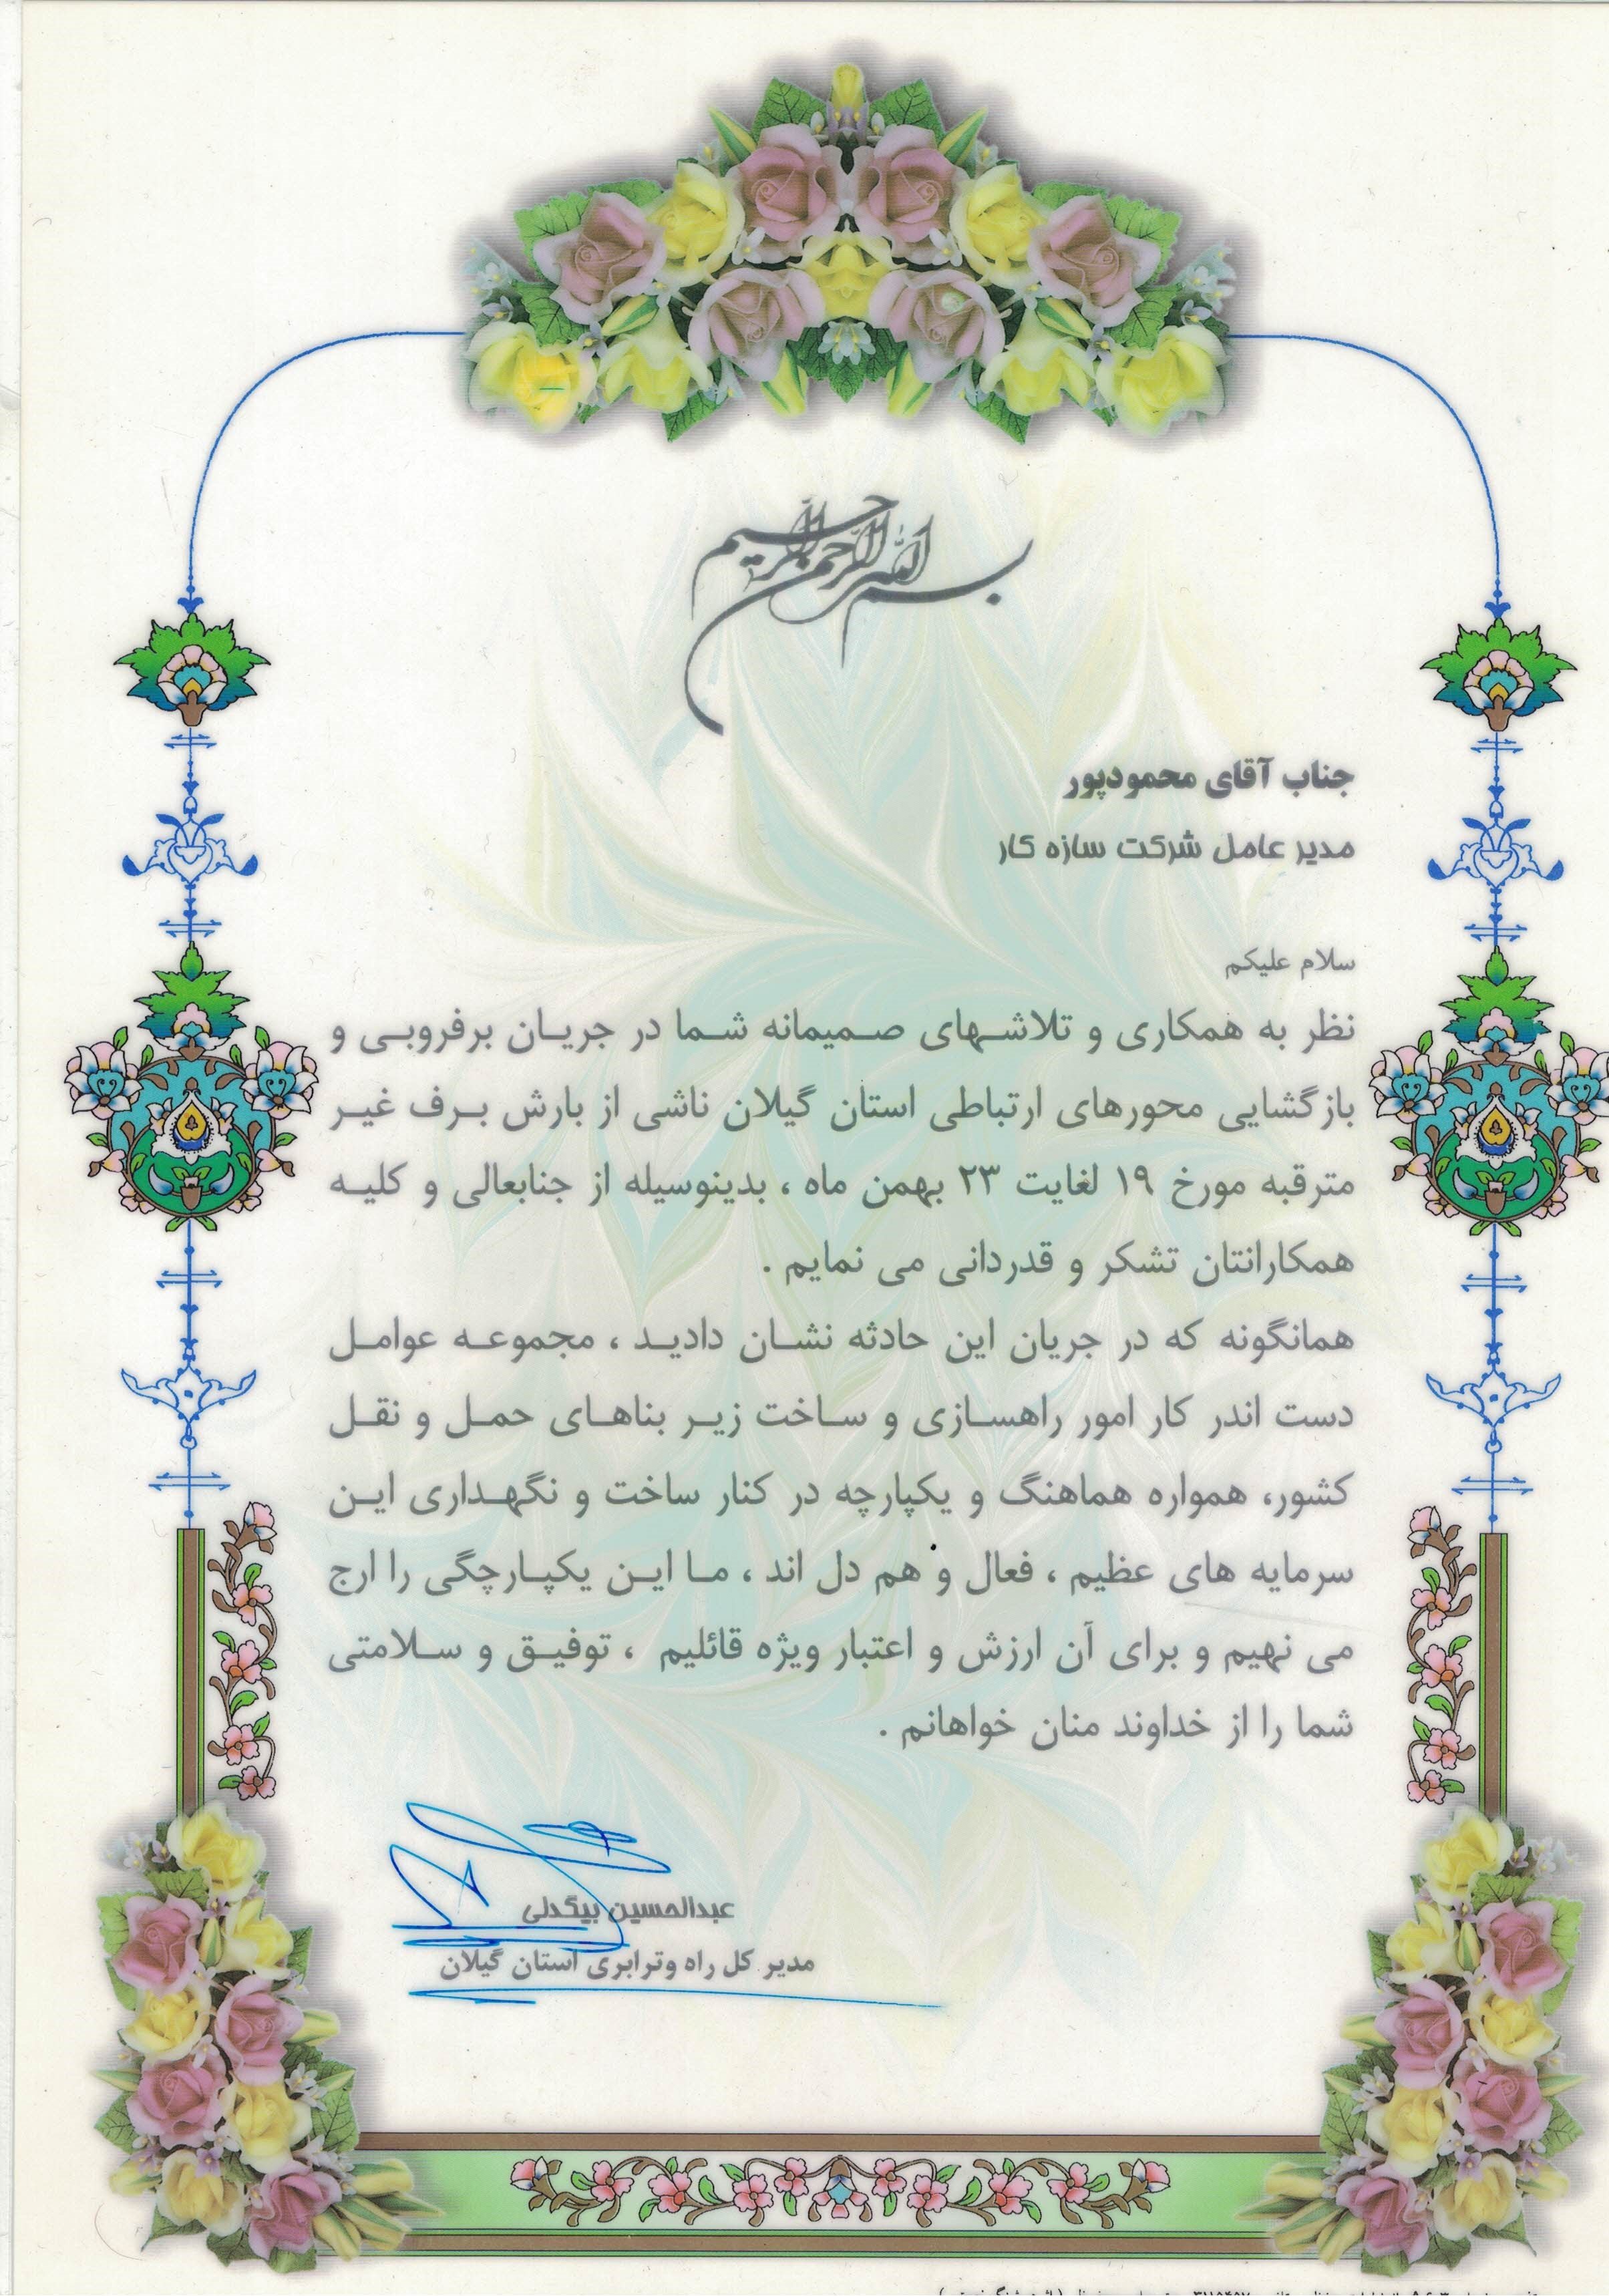 بسم الله الرحمن الرحیم
جناب آقای محمودپور
مدیر عامل شرکت سازه کار
سلام علیکم
نظر به همکاری و تلاشهای صمیمانه شما در جریان برفروبی و
بازگشایی محورهای ارتباطی استان گیلان ناشی از بارش برف غیر
مترقبه مورخ ۱۹ لغایت ۲۳ بهمن ماه ، بدینوسیله از جنابعالی و کلیه
همکارانتان تشکر و قدردانی می نمایم .
همانگونه که در جریان این حادثه نشان دادید ، مجموعه عوامل
دست اندر کار امور راهسازی و ساخت زیر بناهای حمل و نقل
کشور، همواره هماهنگ و یکپارچه در کنار ساخت و نگهداری این
سرمایه های عظیم ، فعال و هم دل اند ، ما این یکپارچگی را ارج
می نهیم و برای آن ارزش و اعتبار ویژه قائلیم ، توفیق و سلامتی
شما را از خداوند منان خواهانم .
عبدالحسین بیگدلی
مدیر کل راه وترابری استان گیلان